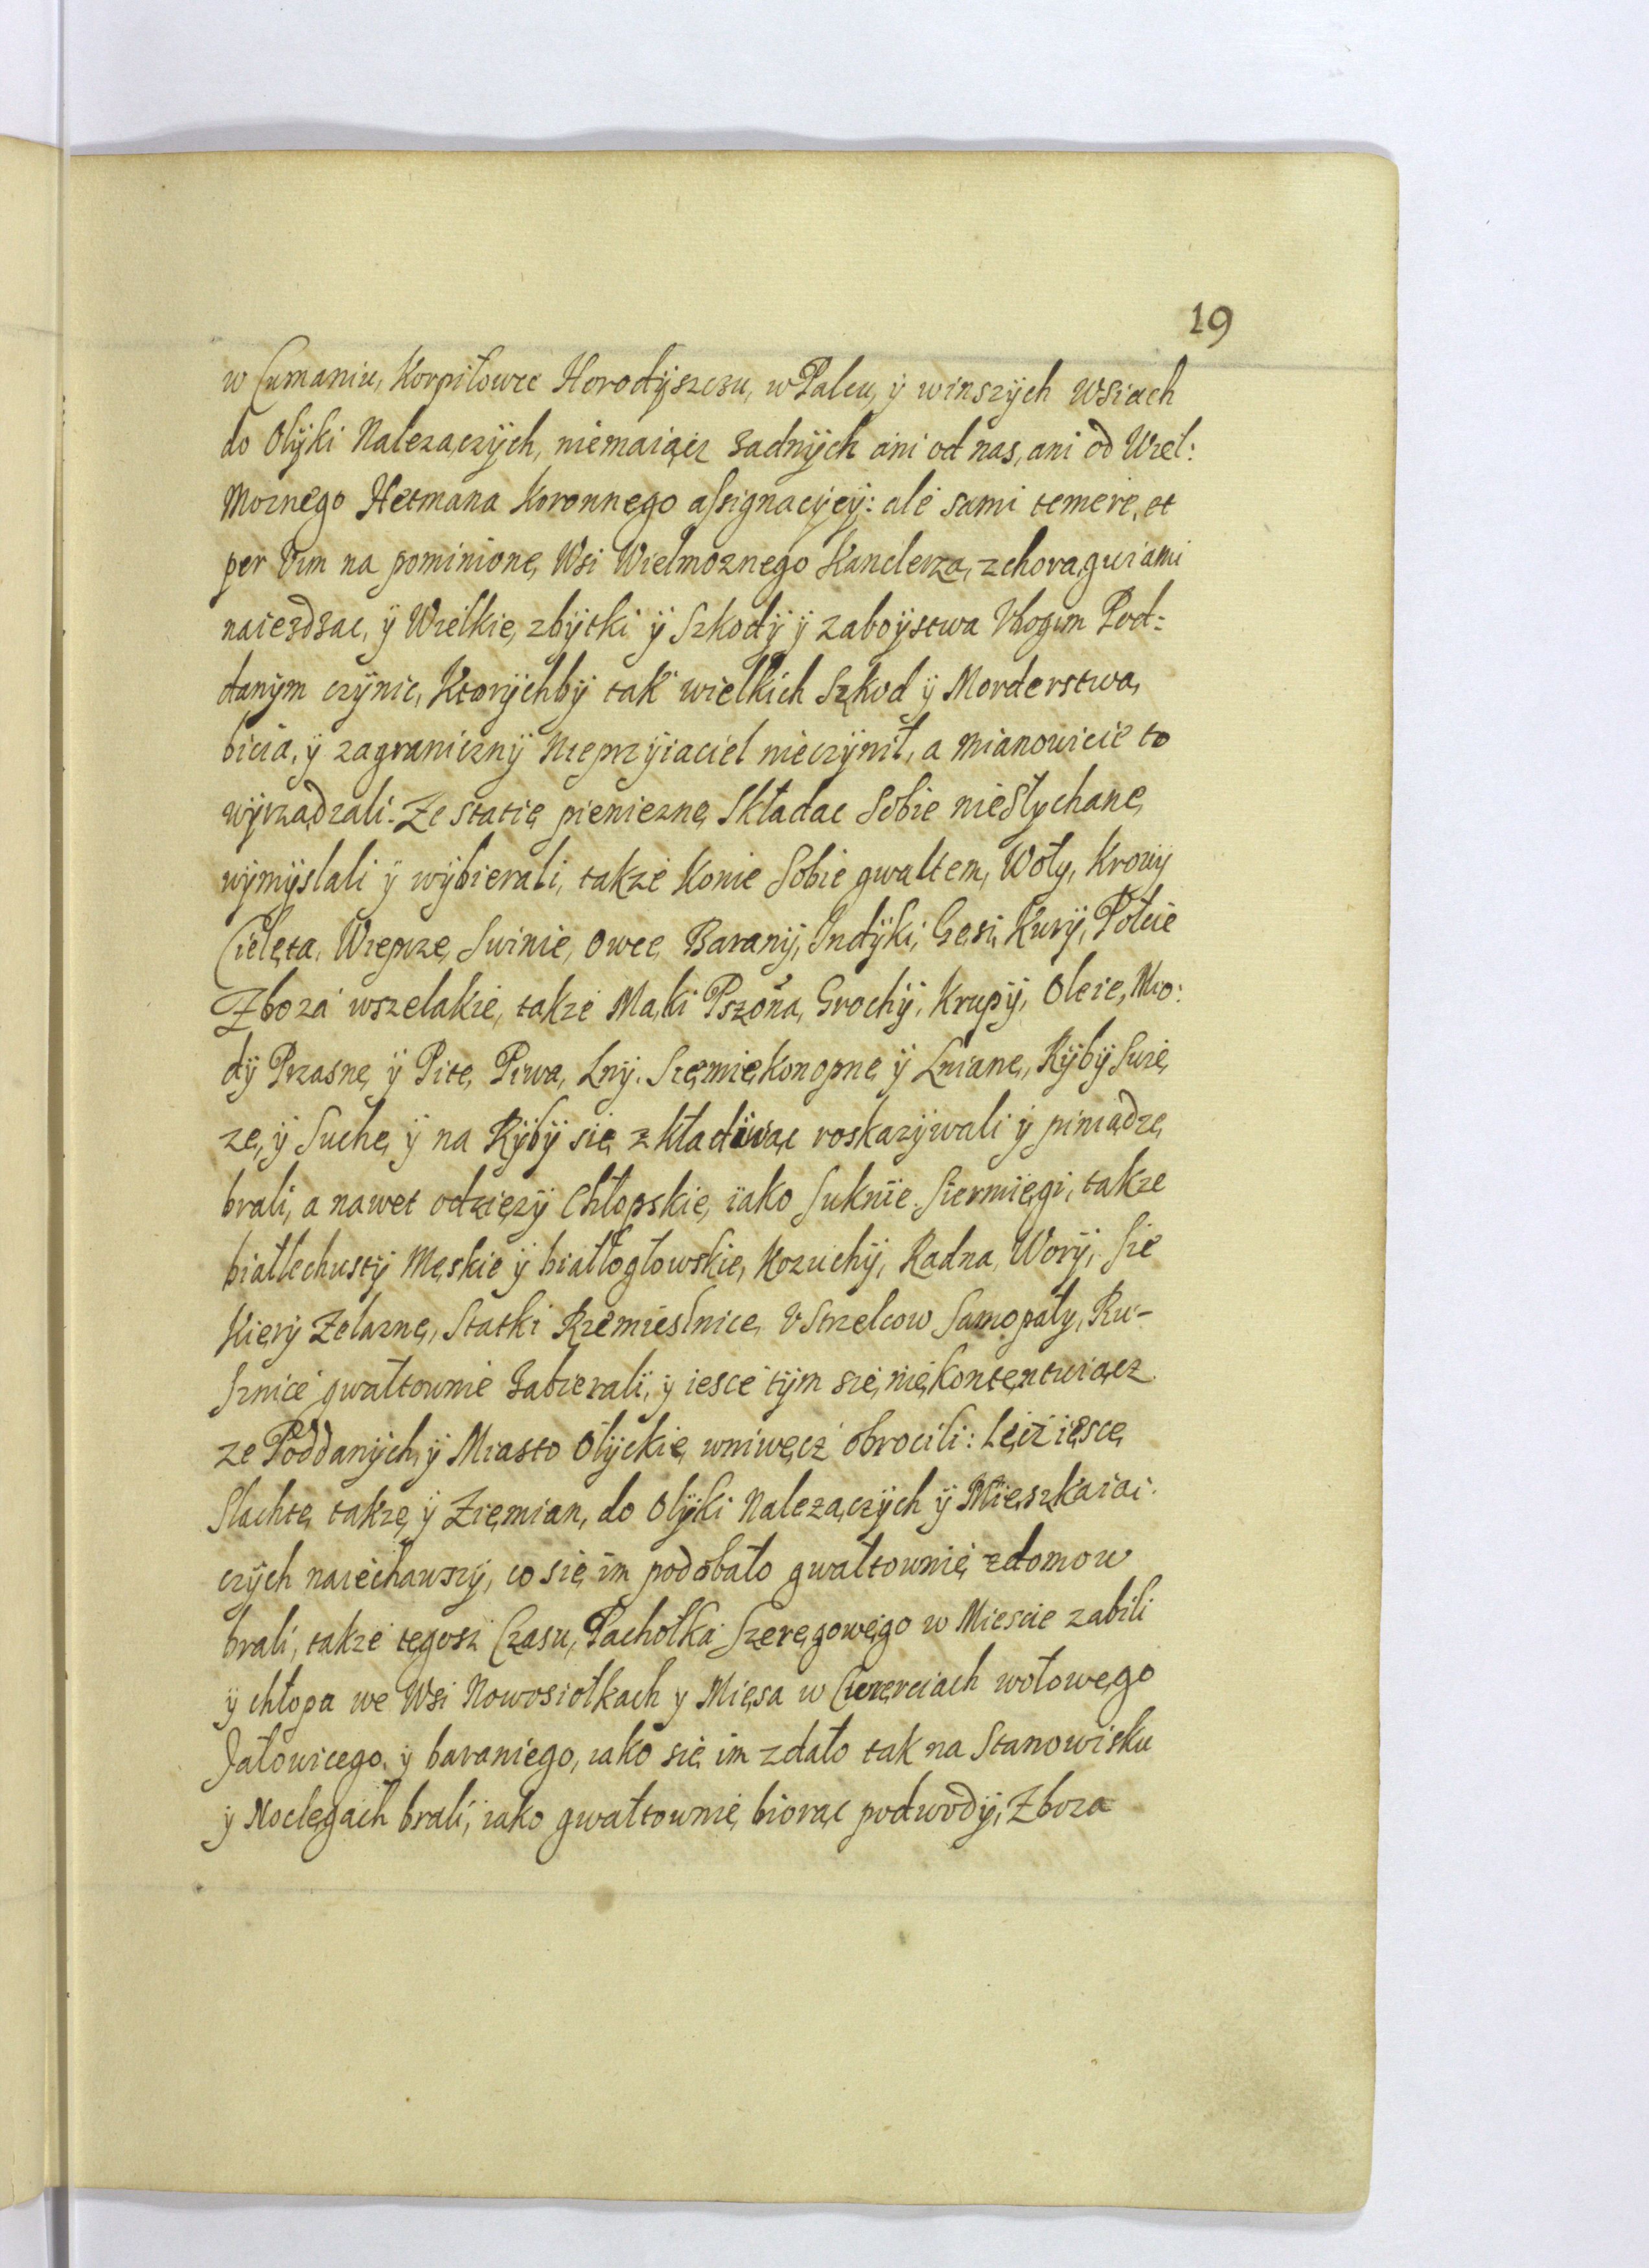 19
w Cumaniu, Korpiłowce Horodÿszczu, w Palcu, ÿ winszÿch Wsiach
do Olÿki Nalezączÿch, niemaiącz zadnÿch ani od nas, ani od Wiel:
Moznego Hetmana Koronnego assignacÿeÿ: ale sami temere, et
per Vim na pominione, Wsi Wielmoznego Kanclerza, z choragwiami
naiezdzac, ÿ Wielkie, zbÿtki ÿ Szkodÿ ÿ zaboÿstwa Vbogim Pod=
danÿm czÿnic, Ktorÿchbÿ tak wielkich Szkod ÿ Morderstwa,
bicia, ÿ zagranicznÿ Nieprzÿiaciel nieczÿnił, a mianowicie to
wÿrządzali. Ze statie pieniezne, Składac Sobie niesłychane,
wÿmÿslali ÿ wÿbierali, takze Konie Sobie gwałtem, Woły, Krowÿ
Cielęta, Wieprze, Swinie, Owce, Baranÿ, Indÿki, Gęsi, Kurÿ, Połcie
Zboza wszelakie, takze Mąki Pszona, Grochÿ, Krupÿ, Oleie, Mio:
dÿ Przasne, ÿ Pite, Piwa, Lnÿ. Siemie, Konopne ÿ Lniane, Rÿbÿ Swie,
ze, ÿ Suche, ÿ na Rÿbÿ się zkładiwac roskazÿwali ÿ piniądze,
brali, a nawet odziezÿ Chłopskie, iako Suknie. Siermięgi, takze
białłechustÿ Męskie ÿ białłogłowskie, Kozuchÿ, Radna, Worÿ, Sie
Kierÿ Zelazne, Statki Rzemieslnice, V Strzelcow Samopały, Ru-
sznice gwałtownie Zabierali, ÿ iesce tÿm się, nie, kontentuiącz.
ze Poddanÿch, ÿ Miasto Olÿckie wniwecz obrocili: Lecz iesce,
Slachte, takze, ÿ Ziemian, do Olÿki Nalezączÿch ÿ Mieszkaiąi:
czÿch naiechawszÿ, co się im podobało gwałtownie z domow
brali, takze tegosz Czasu, Pachołka Szeregowego w Miescie zabili
ÿ chłopa we Wsi Nowosiołkach ÿ Mięsa w Cwierciach wołowego
Jałowicego, ÿ baraniego, iako się im zdało tak na Stanowisku
ÿ Noclegach brali, iako gwałtownie, biorąc podwodÿ, Zboza